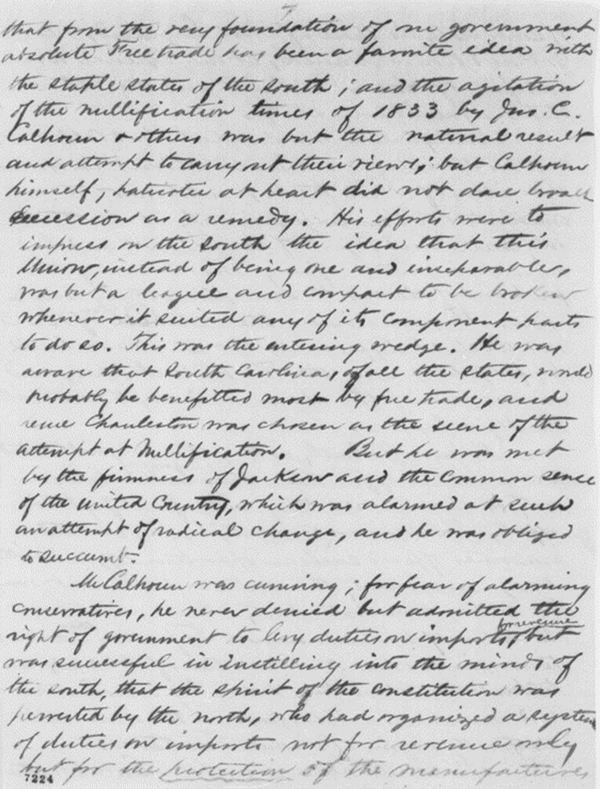 7
that from the very foundation of our government
absolute Free trade has been a favorite idea with
the staple states of the south; and the agitation
of the nullification times of 1833 by Jno. C.
Calhoun & others was but the natural result
and attempt to carry out their views; but Calhoun
himself, patriotic at heart did not dare broach
secession as a remedy. His efforts were to
impress on the south the idea that this
Union, instead of being one and inseparable,
was but a league and compact to be broken
whenever it suited any of its component parts
to do so. This was the entering wedge. He was
aware that South Carolina, of all the states, would
probably be benefitted most by free trade, and
hence Charleston was chosen as the scene of the
attempt at Nullification. But he was met
by the firmness of Jackson and the common sense
of the united Country, which was alarmed at such
an attempt of radical change, and he was obliged
to succumb.
Mr Calhoun was cunning; for fear of alarming
conservatives, he never denied but admitted the
for revenue
right of government to levy duties on imports, but
was successful in instilling into the minds of
the south, that the spirit of the constitution was
perverted by the north, who had organized a system
of duties on imports not for revenue only
but for the protection of the manufactures
7224